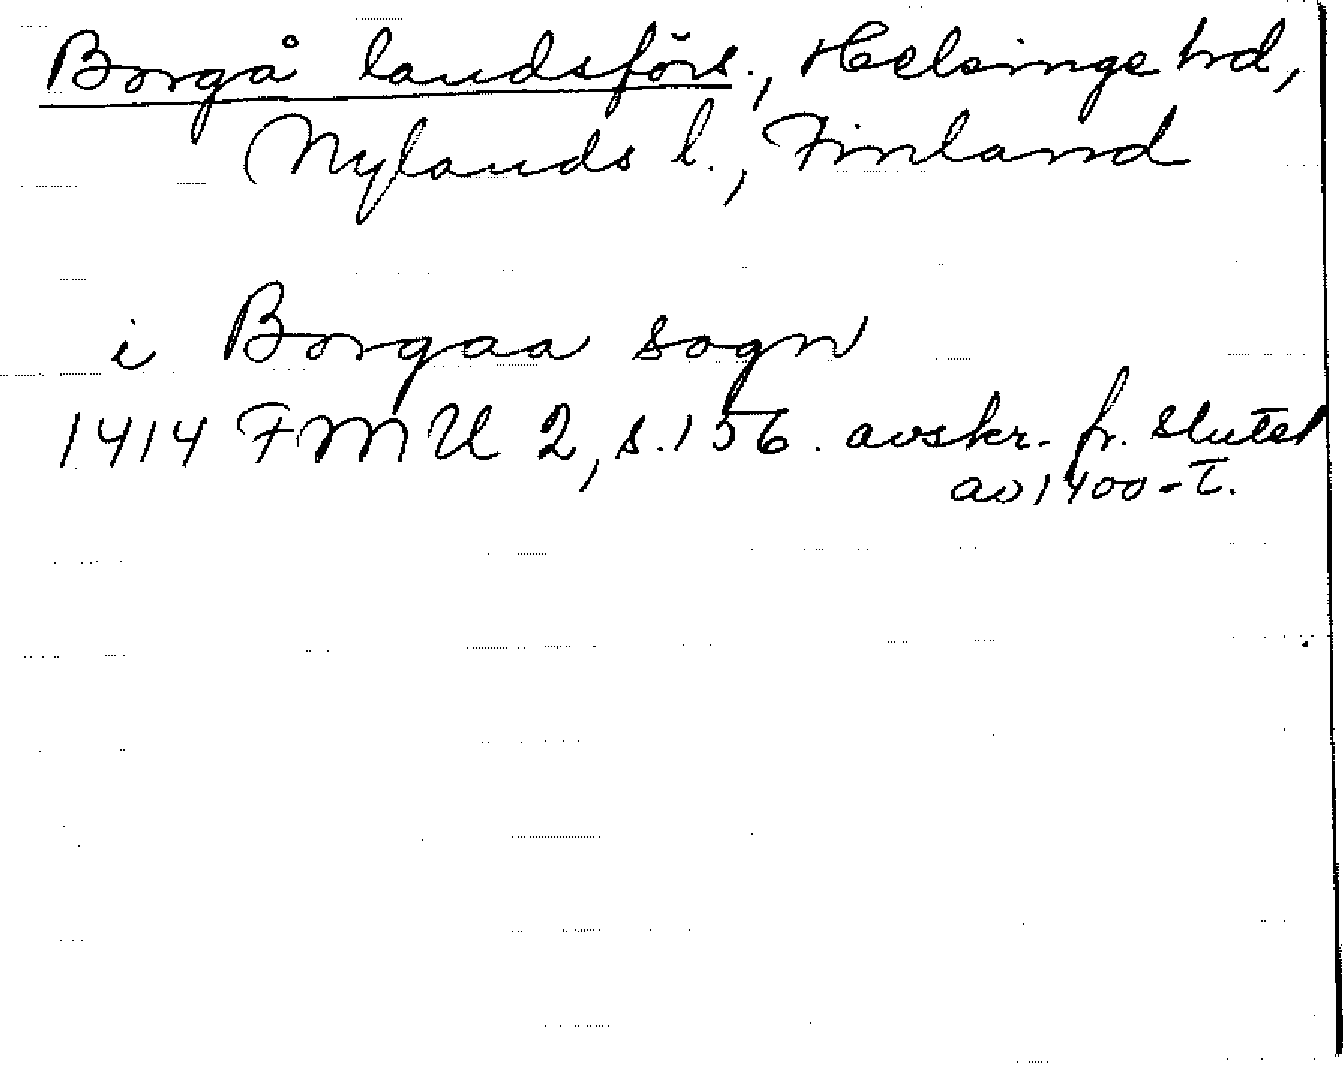 Borgå landsförs., Helsinge hd,
Nylands l., Finland
i Borgaa sogn
1414 FMU 2, s.156. avskr. fr. slutet
av 1400-t.